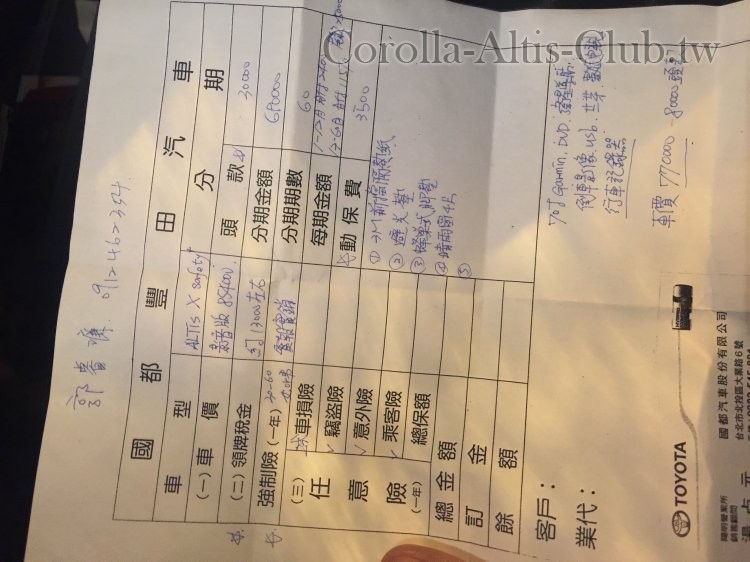 Corolla-Altis-Club.tw
0912462354
國都豐田汽車
車型 ALTIS X safety+
分期
(一)車價 影音版 854000
頭款 30000
(二)領牌稅金 約13000左右
分期金額 690000
強制險(一年)
分期期數 60
(三)任意險(一年)
車損險
每期金額
竊盜險
動保費 3500
意外險
①3M前擋隔熱紙
乘客險
②避光墊
總保額
③蜂巢式腳墊
總金額
④晴雨窗4片
訂金
⑤
餘額
客戶：
7吋 Garmin, DVD,
倒車影像, usb,
行車記錄器
業代：
車價 770000
TOYOTA
國都汽車股份有限公司
台北市北投區大業路6號